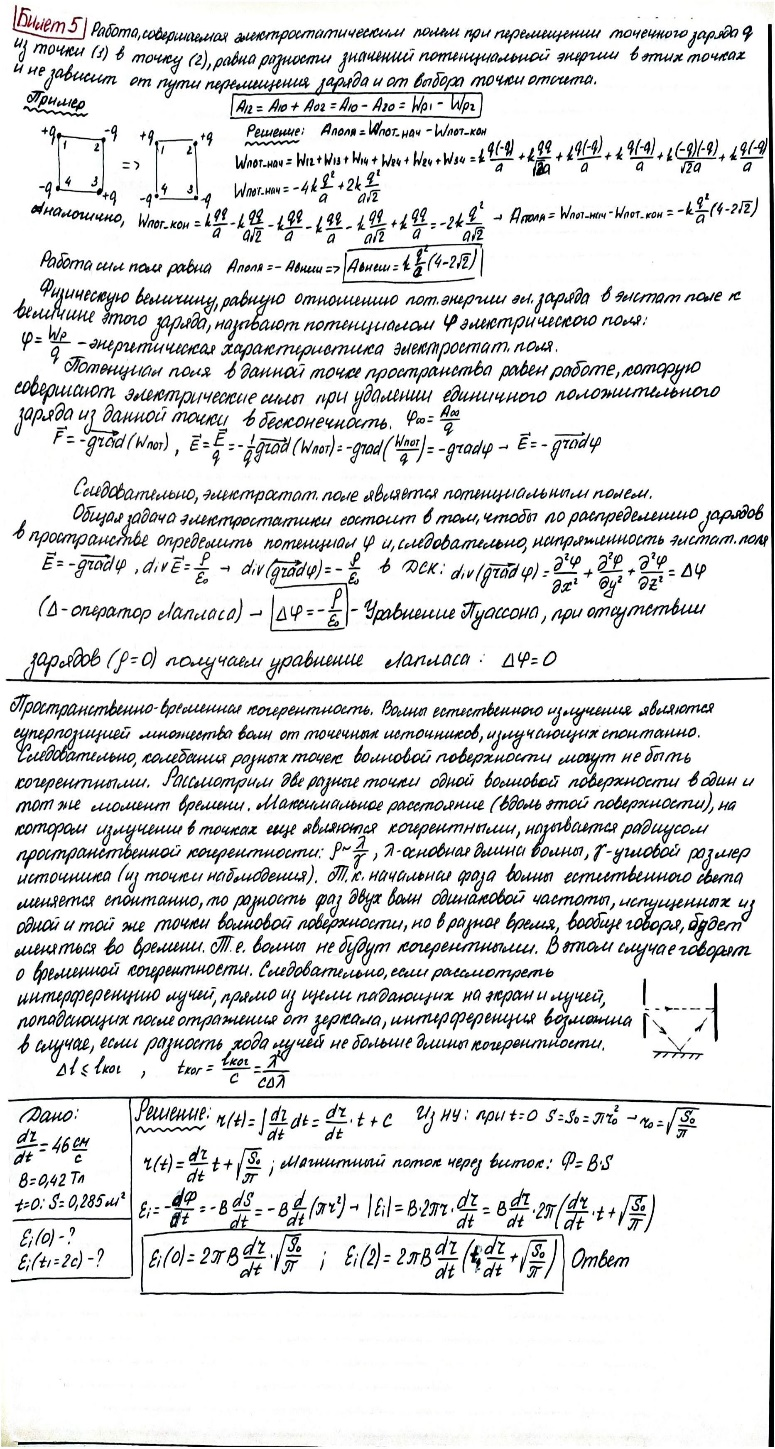 Билет 5 Работа, совершаемая электростатическим полем при перемещении точечного заряда q
из точки (1) в точку (2), равна разности значений потенциальной энергии в этих точках
и не зависит от пути перемещения заряда и от выбора точки отсчета.
Пример A12 = A10 + A02 = A10 - A20 = Wp1 - Wp2
+q -q +q +q Решение: Aполя = Wпот_нач - Wпот_кон
1 2 => 1 2 Wпот_нач = W12 + W13 + W14 + W24 + W24 + W34 = k q(-q)/a + k qq/√2a + k q(-q)/a + k q(-q)/a + k (-q)(-q)/√2a + k q(-q)/a
-q 4 3 +q -q 4 3 -q Wпот_нач = -4k q²/a + 2k q²/a√2
Аналогично, Wпот_кон = k qq/a - k qq/a√2 - k qq/a - k qq/a - k qq/a√2 + k qq/a = -2k q²/a√2 → Aполя = Wпот_нач - Wпот_кон = -k q²/a (4-2√2)
Работа сил поля равна Aполя = -Aвнеш => Aвнеш = k q²/a (4-2√2)
Физическую величину, равную отношению пот. энергии эл. заряда в эл.стат поле к
величине этого заряда, называют потенциалом φ электрического поля:
φ = Wp/q - энергетическая характеристика электростат. поля.
Потенциал поля в данной точке пространства равен работе, которую
совершают электрические силы при удалении единичного положительного
заряда из данной точки в бесконечность. φ∞ = A∞/q
F⃗ = -grad(Wпот), E⃗ = F⃗/q = -1/q grad(Wпот) = -grad(Wпот/q) = -gradφ → E⃗ = -gradφ
Следовательно, электростат. поле является потенциальным полем.
Общая задача электростатики состоит в том, чтобы по распределению зарядов
в пространстве определить потенциал φ и, следовательно, напряжинность эл.стат. поля
E⃗ = -gradφ, div E⃗ = ρ/ε₀ → div(gradφ) = -ρ/ε₀ в ДСК: div(gradφ) = ∂²φ/∂x² + ∂²φ/∂y² + ∂²φ/∂z² = Δφ
(Δ-оператор Лапласа) → Δφ = -ρ/ε₀ - Уравнение Пуассона, при отсутствии
зарядов (ρ=0) получаем уравнение Лапласа: Δφ=0
Пространственно-временная когерентность. Волны естественного излучения являются
суперпозицией множества волн от точечных источников, излучающих спонтанно.
Следовательно, колебания разных точек волновой поверхности могут не быть
когерентными. Рассмотрим две разные точки одной волновой поверхности в один и
тот же момент времени. Максимальное расстояние (вдоль этой поверхности), на
котором излучение в точках еще являются когерентными, называется радиусом
пространственной когерентности: ρ ~ λ/γ, λ-основная длина волны, γ-угловой размер
источника (из точки наблюдения). Т.к. начальная фаза волны естественного света
меняется спонтанно, то разность фаз двух волн одинаковой частоты, испущенных из
одной и той же точки волновой поверхности, но в разное время, вообще говоря, будет
меняться во времени. Т.е. волны не будут когерентными. В этом случае говорят
о временной когерентности. Следовательно, если рассмотреть
интерференцию лучей, прямо из щели падающих на экран и лучей,
попадающих после отражения от зеркала, интерференция возможна
в случае, если разность хода лучей не больше длины когерентности.
Δl ≤ lког , tког = lког/c = λ²/cΔλ
Дано: Решение: r(t) = ∫ dr/dt dt = dr/dt · t + C Из НУ: при t=0 S = S₀ = πr₀² → r₀ = √(S₀/π)
dr/dt = 46 см/с
B = 0,42 Тл r(t) = dr/dt t + √(S₀/π) ; Магнитный поток через виток: Ф = B·S
t=0: S = 0,285 м² εi = -dФ/dt = -B dS/dt = -B d/dt (πr²) → |εi| = B·2πr · dr/dt = B dr/dt · 2π(dr/dt · t + √(S₀/π))
εi(0) - ?
εi(t1=2c) - ? εi(0) = 2πB dr/dt · √(S₀/π) ; εi(2) = 2πB dr/dt (t₁ dr/dt + √(S₀/π)) Ответ